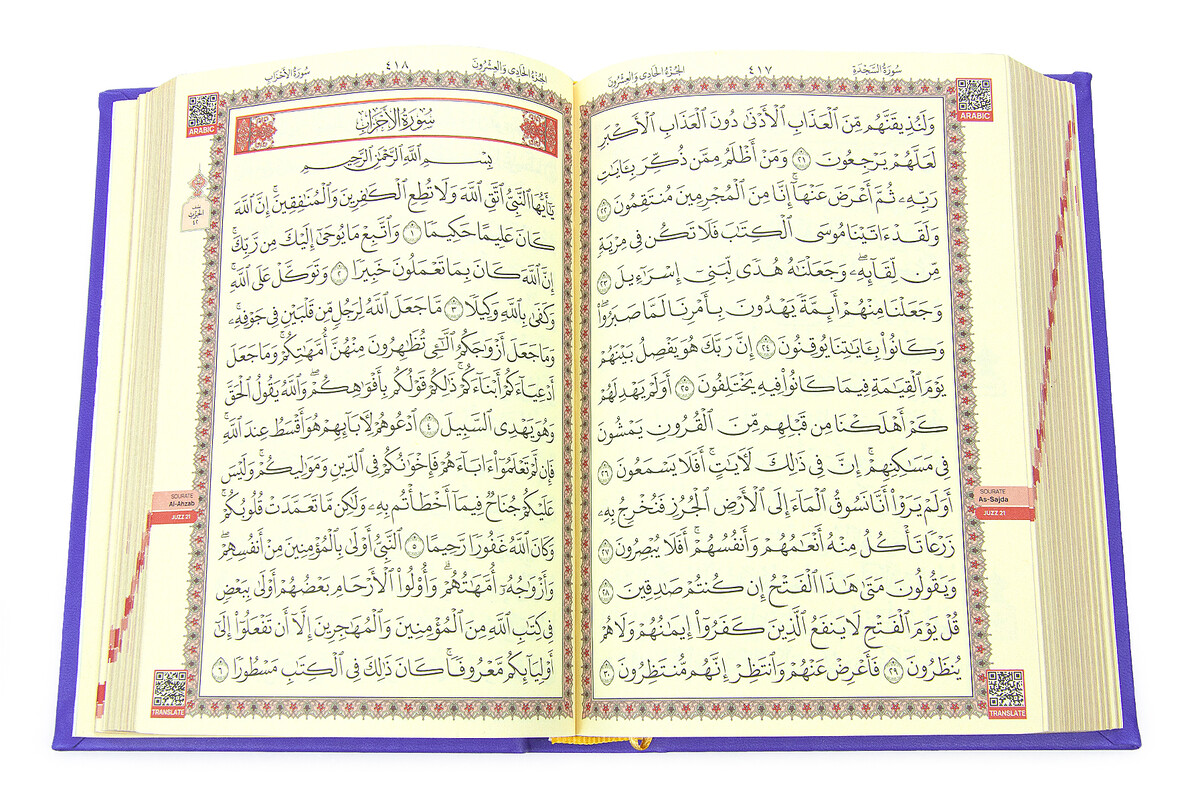 سُورَةُ السَّجْدَةِ
٤١٧
الجُزْءُ الحَادِى وَالعِشْرُونَ
ARABIC
وَلَنُذِيقَنَّهُم مِّنَ ٱلْعَذَابِ ٱلْأَدْنَىٰ دُونَ ٱلْعَذَابِ ٱلْأَكْبَرِ
لَعَلَّهُمْ يَرْجِعُونَ ٢١ وَمَنْ أَظْلَمُ مِمَّن ذُكِّرَ بِـَٔايَٰتِ
رَبِّهِۦ ثُمَّ أَعْرَضَ عَنْهَآ ۚ إِنَّا مِنَ ٱلْمُجْرِمِينَ مُنتَقِمُونَ ٢٢
وَلَقَدْ ءَاتَيْنَا مُوسَى ٱلْكِتَٰبَ فَلَا تَكُن فِى مِرْيَةٍ
مِّن لِّقَآئِهِۦ ۖ وَجَعَلْنَٰهُ هُدًى لِّبَنِىٓ إِسْرَٰٓءِيلَ ٢٣
وَجَعَلْنَا مِنْهُمْ أَئِمَّةً يَهْدُونَ بِأَمْرِنَا لَمَّا صَبَرُوا۟ ۖ
وَكَانُوا۟ بِـَٔايَٰتِنَا يُوقِنُونَ ٢٤ إِنَّ رَبَّكَ هُوَ يَفْصِلُ بَيْنَهُمْ
يَوْمَ ٱلْقِيَٰمَةِ فِيمَا كَانُوا۟ فِيهِ يَخْتَلِفُونَ ٢٥ أَوَلَمْ يَهْدِ لَهُمْ
كَمْ أَهْلَكْنَا مِن قَبْلِهِم مِّنَ ٱلْقُرُونِ يَمْشُونَ
فِى مَسَٰكِنِهِمْ ۚ إِنَّ فِى ذَٰلِكَ لَـَٔايَٰتٍ ۖ أَفَلَا يَسْمَعُونَ ٢٦
أَوَلَمْ يَرَوْا۟ أَنَّا نَسُوقُ ٱلْمَآءَ إِلَى ٱلْأَرْضِ ٱلْجُرُزِ فَنُخْرِجُ بِهِۦ
زَرْعًا تَأْكُلُ مِنْهُ أَنْعَٰمُهُمْ وَأَنفُسُهُمْ ۖ أَفَلَا يُبْصِرُونَ ٢٧
وَيَقُولُونَ مَتَىٰ هَٰذَا ٱلْفَتْحُ إِن كُنتُمْ صَٰدِقِينَ ٢٨
قُلْ يَوْمَ ٱلْفَتْحِ لَا يَنفَعُ ٱلَّذِينَ كَفَرُوٓا۟ إِيمَٰنُهُمْ وَلَا هُمْ
يُنظَرُونَ ٢٩ فَأَعْرِضْ عَنْهُمْ وَٱنتَظِرْ إِنَّهُم مُّنتَظِرُونَ ٣٠
SOURATE
As-Sajda
JUZZ 21
TRANSLATE
الجُزْءُ الحَادِى وَالعِشْرُونَ
٤١٨
سُورَةُ الأَحْزَابِ
ARABIC
سُورَةُ الأَحْزَابِ
بِسْمِ ٱللَّهِ ٱلرَّحْمَٰنِ ٱلرَّحِيمِ
يَٰٓأَيُّهَا ٱلنَّبِىُّ ٱتَّقِ ٱللَّهَ وَلَا تُطِعِ ٱلْكَٰفِرِينَ وَٱلْمُنَٰفِقِينَ ۗ إِنَّ ٱللَّهَ
كَانَ عَلِيمًا حَكِيمًا ١ وَٱتَّبِعْ مَا يُوحَىٰٓ إِلَيْكَ مِن رَّبِّكَ ۚ
إِنَّ ٱللَّهَ كَانَ بِمَا تَعْمَلُونَ خَبِيرًا ٢ وَتَوَكَّلْ عَلَى ٱللَّهِ ۚ
وَكَفَىٰ بِٱللَّهِ وَكِيلًا ٣ مَّا جَعَلَ ٱللَّهُ لِرَجُلٍ مِّن قَلْبَيْنِ فِى جَوْفِهِۦ ۚ
وَمَا جَعَلَ أَزْوَٰجَكُمُ ٱلَّٰٓـِٔى تُظَٰهِرُونَ مِنْهُنَّ أُمَّهَٰتِكُمْ ۚ وَمَا جَعَلَ
أَدْعِيَآءَكُمْ أَبْنَآءَكُمْ ۚ ذَٰلِكُمْ قَوْلُكُم بِأَفْوَٰهِكُمْ ۖ وَٱللَّهُ يَقُولُ ٱلْحَقَّ
وَهُوَ يَهْدِى ٱلسَّبِيلَ ٤ ٱدْعُوهُمْ لِءَابَآئِهِمْ هُوَ أَقْسَطُ عِندَ ٱللَّهِ ۚ
فَإِن لَّمْ تَعْلَمُوٓا۟ ءَابَآءَهُمْ فَإِخْوَٰنُكُمْ فِى ٱلدِّينِ وَمَوَٰلِيكُمْ ۚ وَلَيْسَ
عَلَيْكُمْ جُنَاحٌ فِيمَآ أَخْطَأْتُم بِهِۦ وَلَٰكِن مَّا تَعَمَّدَتْ قُلُوبُكُمْ ۚ
وَكَانَ ٱللَّهُ غَفُورًا رَّحِيمًا ٥ ٱلنَّبِىُّ أَوْلَىٰ بِٱلْمُؤْمِنِينَ مِنْ أَنفُسِهِمْ ۖ
وَأَزْوَٰجُهُۥٓ أُمَّهَٰتُهُمْ ۗ وَأُو۟لُوا۟ ٱلْأَرْحَامِ بَعْضُهُمْ أَوْلَىٰ بِبَعْضٍ
فِى كِتَٰبِ ٱللَّهِ مِنَ ٱلْمُؤْمِنِينَ وَٱلْمُهَٰجِرِينَ إِلَّآ أَن تَفْعَلُوٓا۟ إِلَىٰٓ
أَوْلِيَآئِكُم مَّعْرُوفًا ۚ كَانَ ذَٰلِكَ فِى ٱلْكِتَٰبِ مَسْطُورًا ٦
SOURATE
Al-Ahzab
JUZZ 21
TRANSLATE